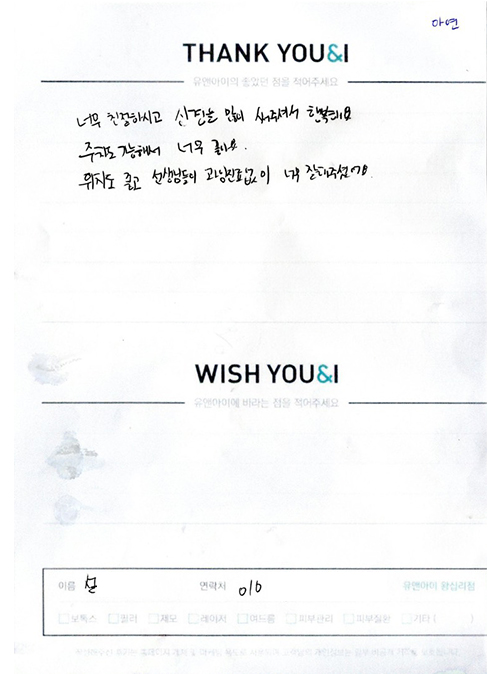 아연
THANK YOU&I
유앤아이의 좋았던 점을 적어주세요
너무 친절하시고 신경을 많이 써주셔서 행복해요
주차도 가능해서 너무 좋아요.
위치도 좋고 선생님들이 과잉진료없이 너무 잘해주셨어요.
WISH YOU&I
유앤아이에 바라는 점을 적어주세요
이름 연락처 010 유앤아이 왕십리점
보톡스 필러 제모 레이저 여드름 피부관리 피부질환 기타 ( )